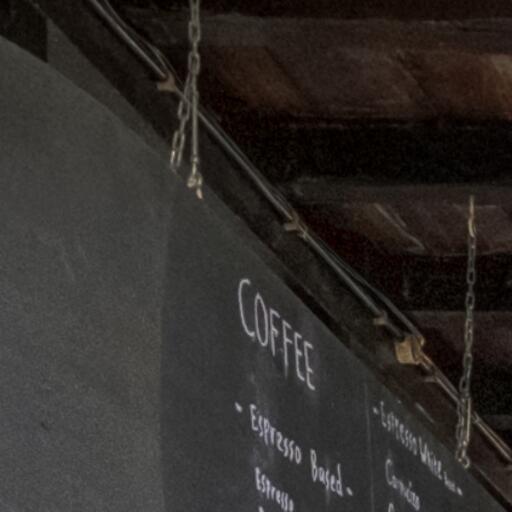 COFFEE
- Espresso Based -
Espresso
- Espresso White Based -